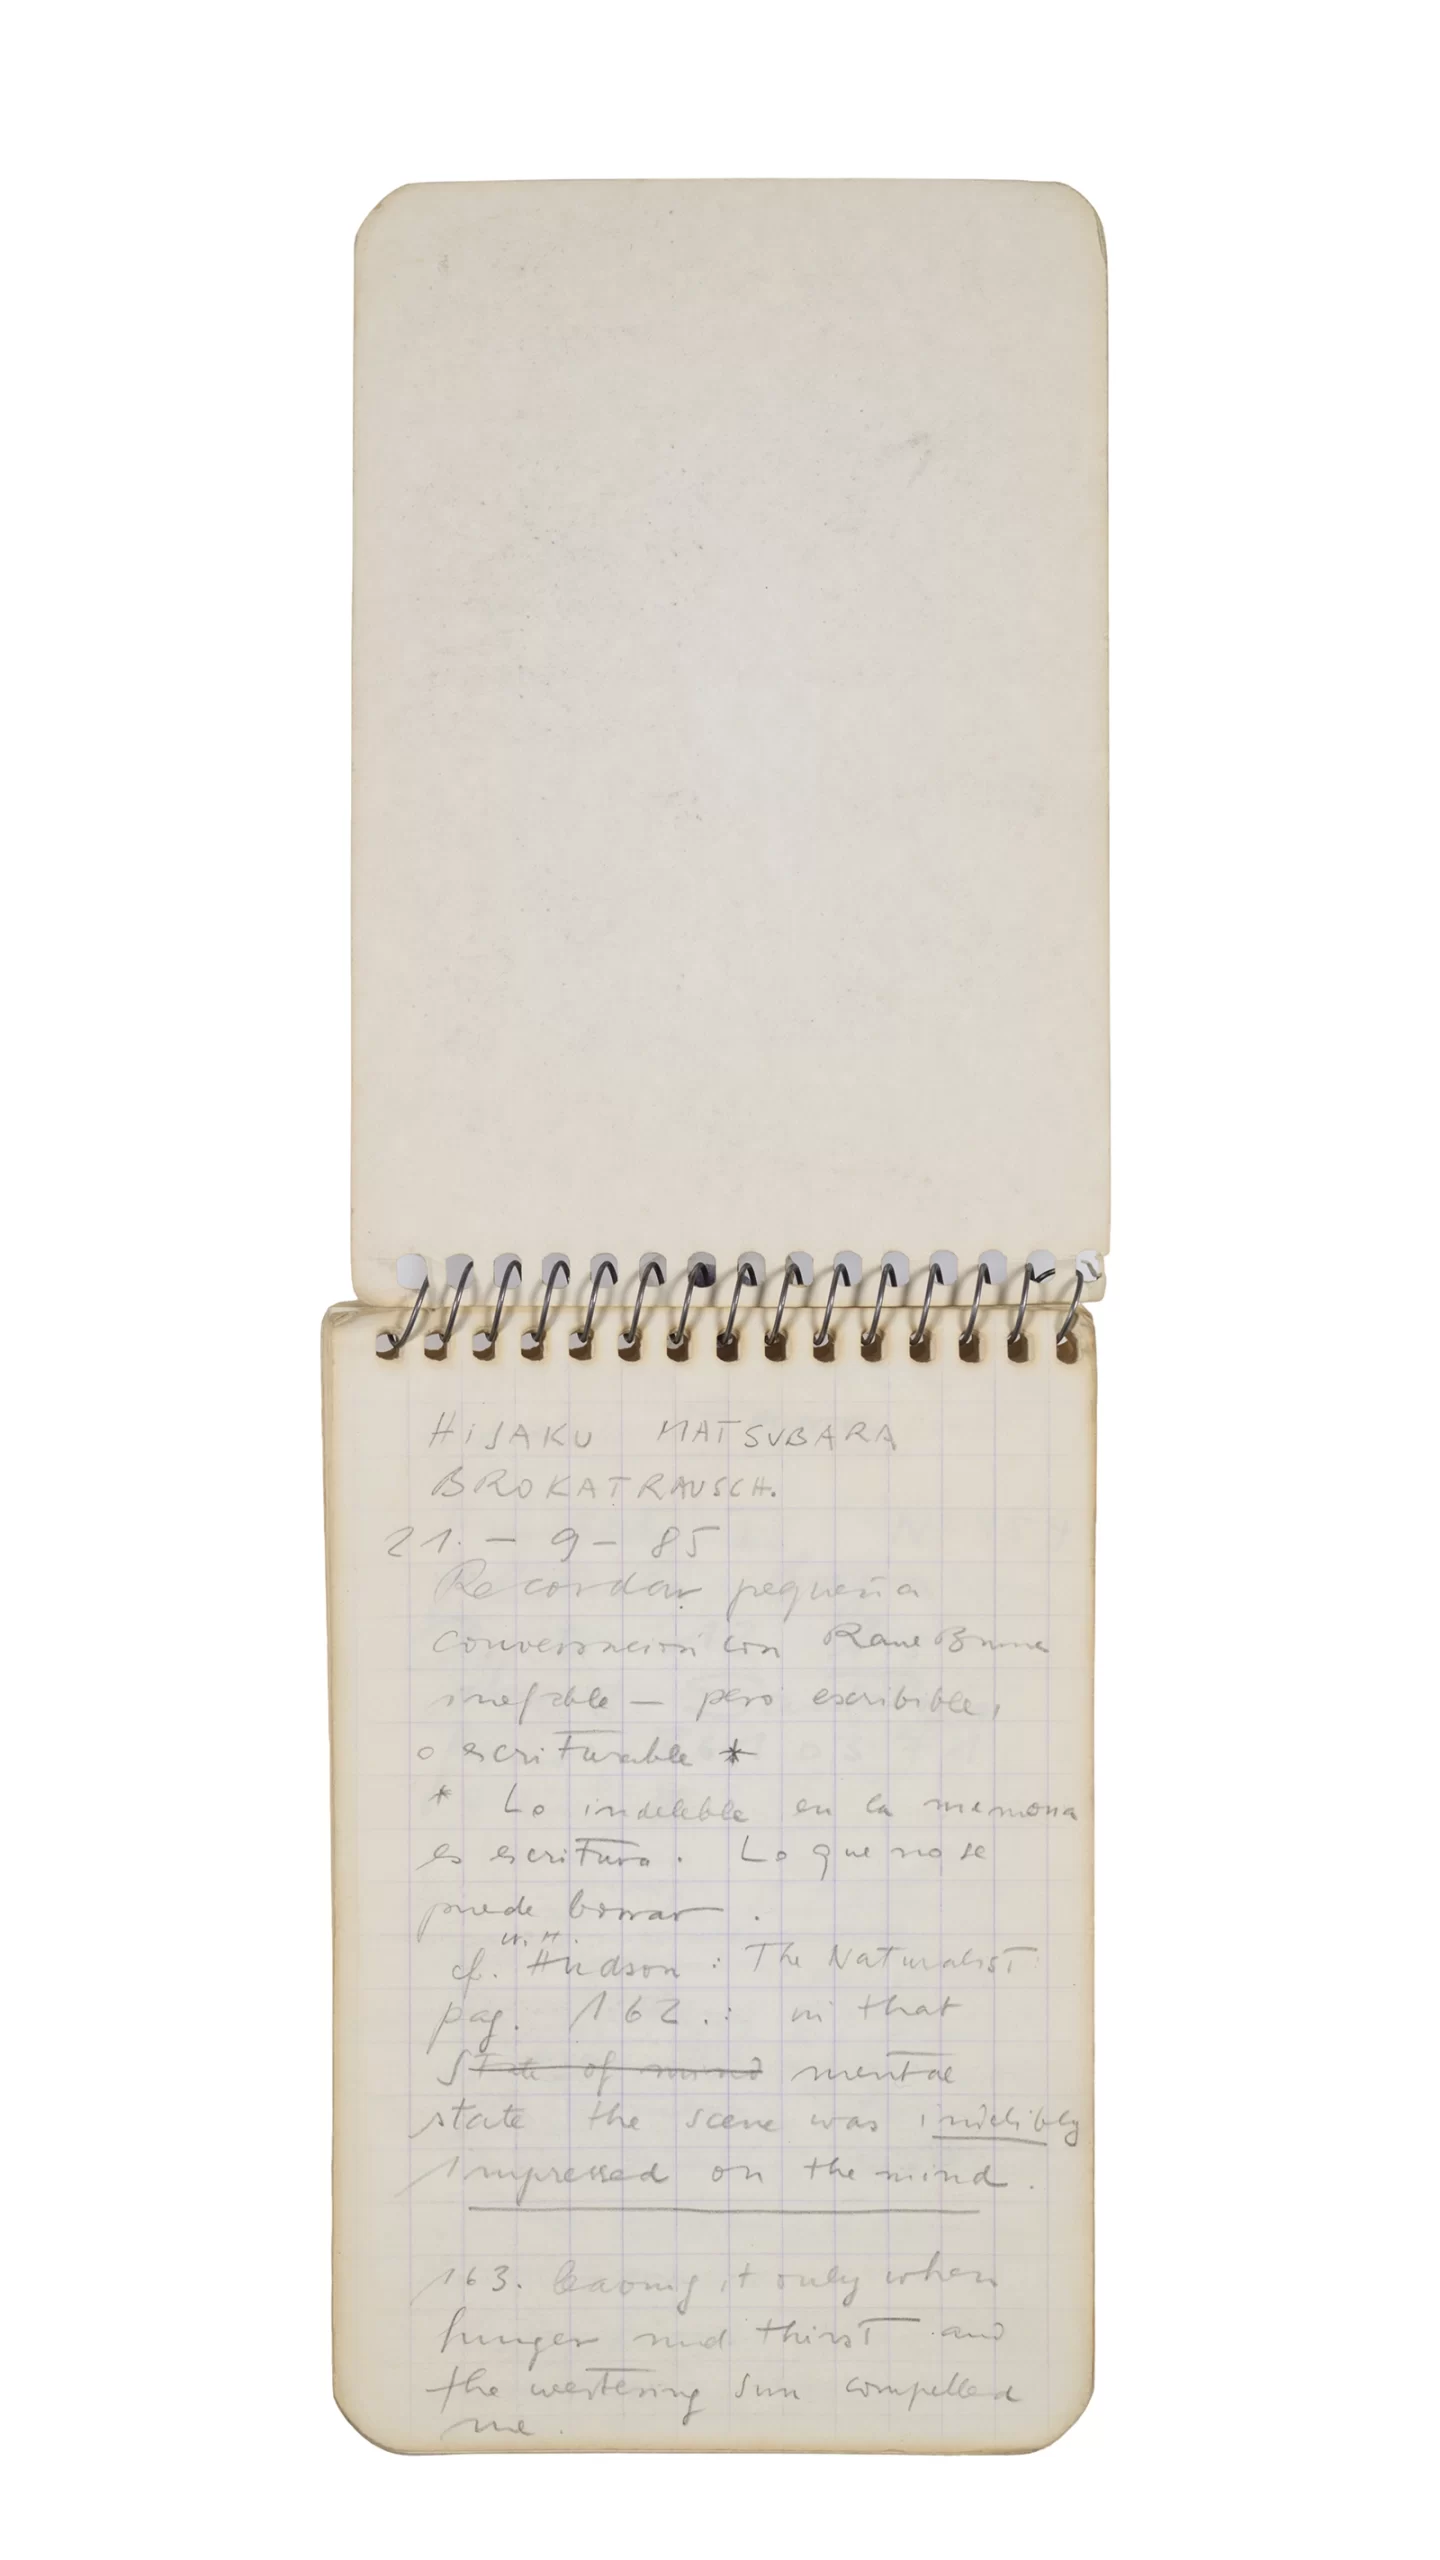 HISAKU MATSUBARA
BROKATRAUSCH.
21. - 9 - 85
Recordar pequeña
conversación con
inefable — pero escribible,
o escriturable *
* Lo indeleble en la memoria
es escritura. Lo que no se
puede borrar.
W. H.
cf. Hudson : The Naturalist
pag. 162. : in that
State of mind mental
state the scene was indelibly
impressed on the mind.
163. leaving it only when
hunger and thirst and
the westering sun compelled
me.